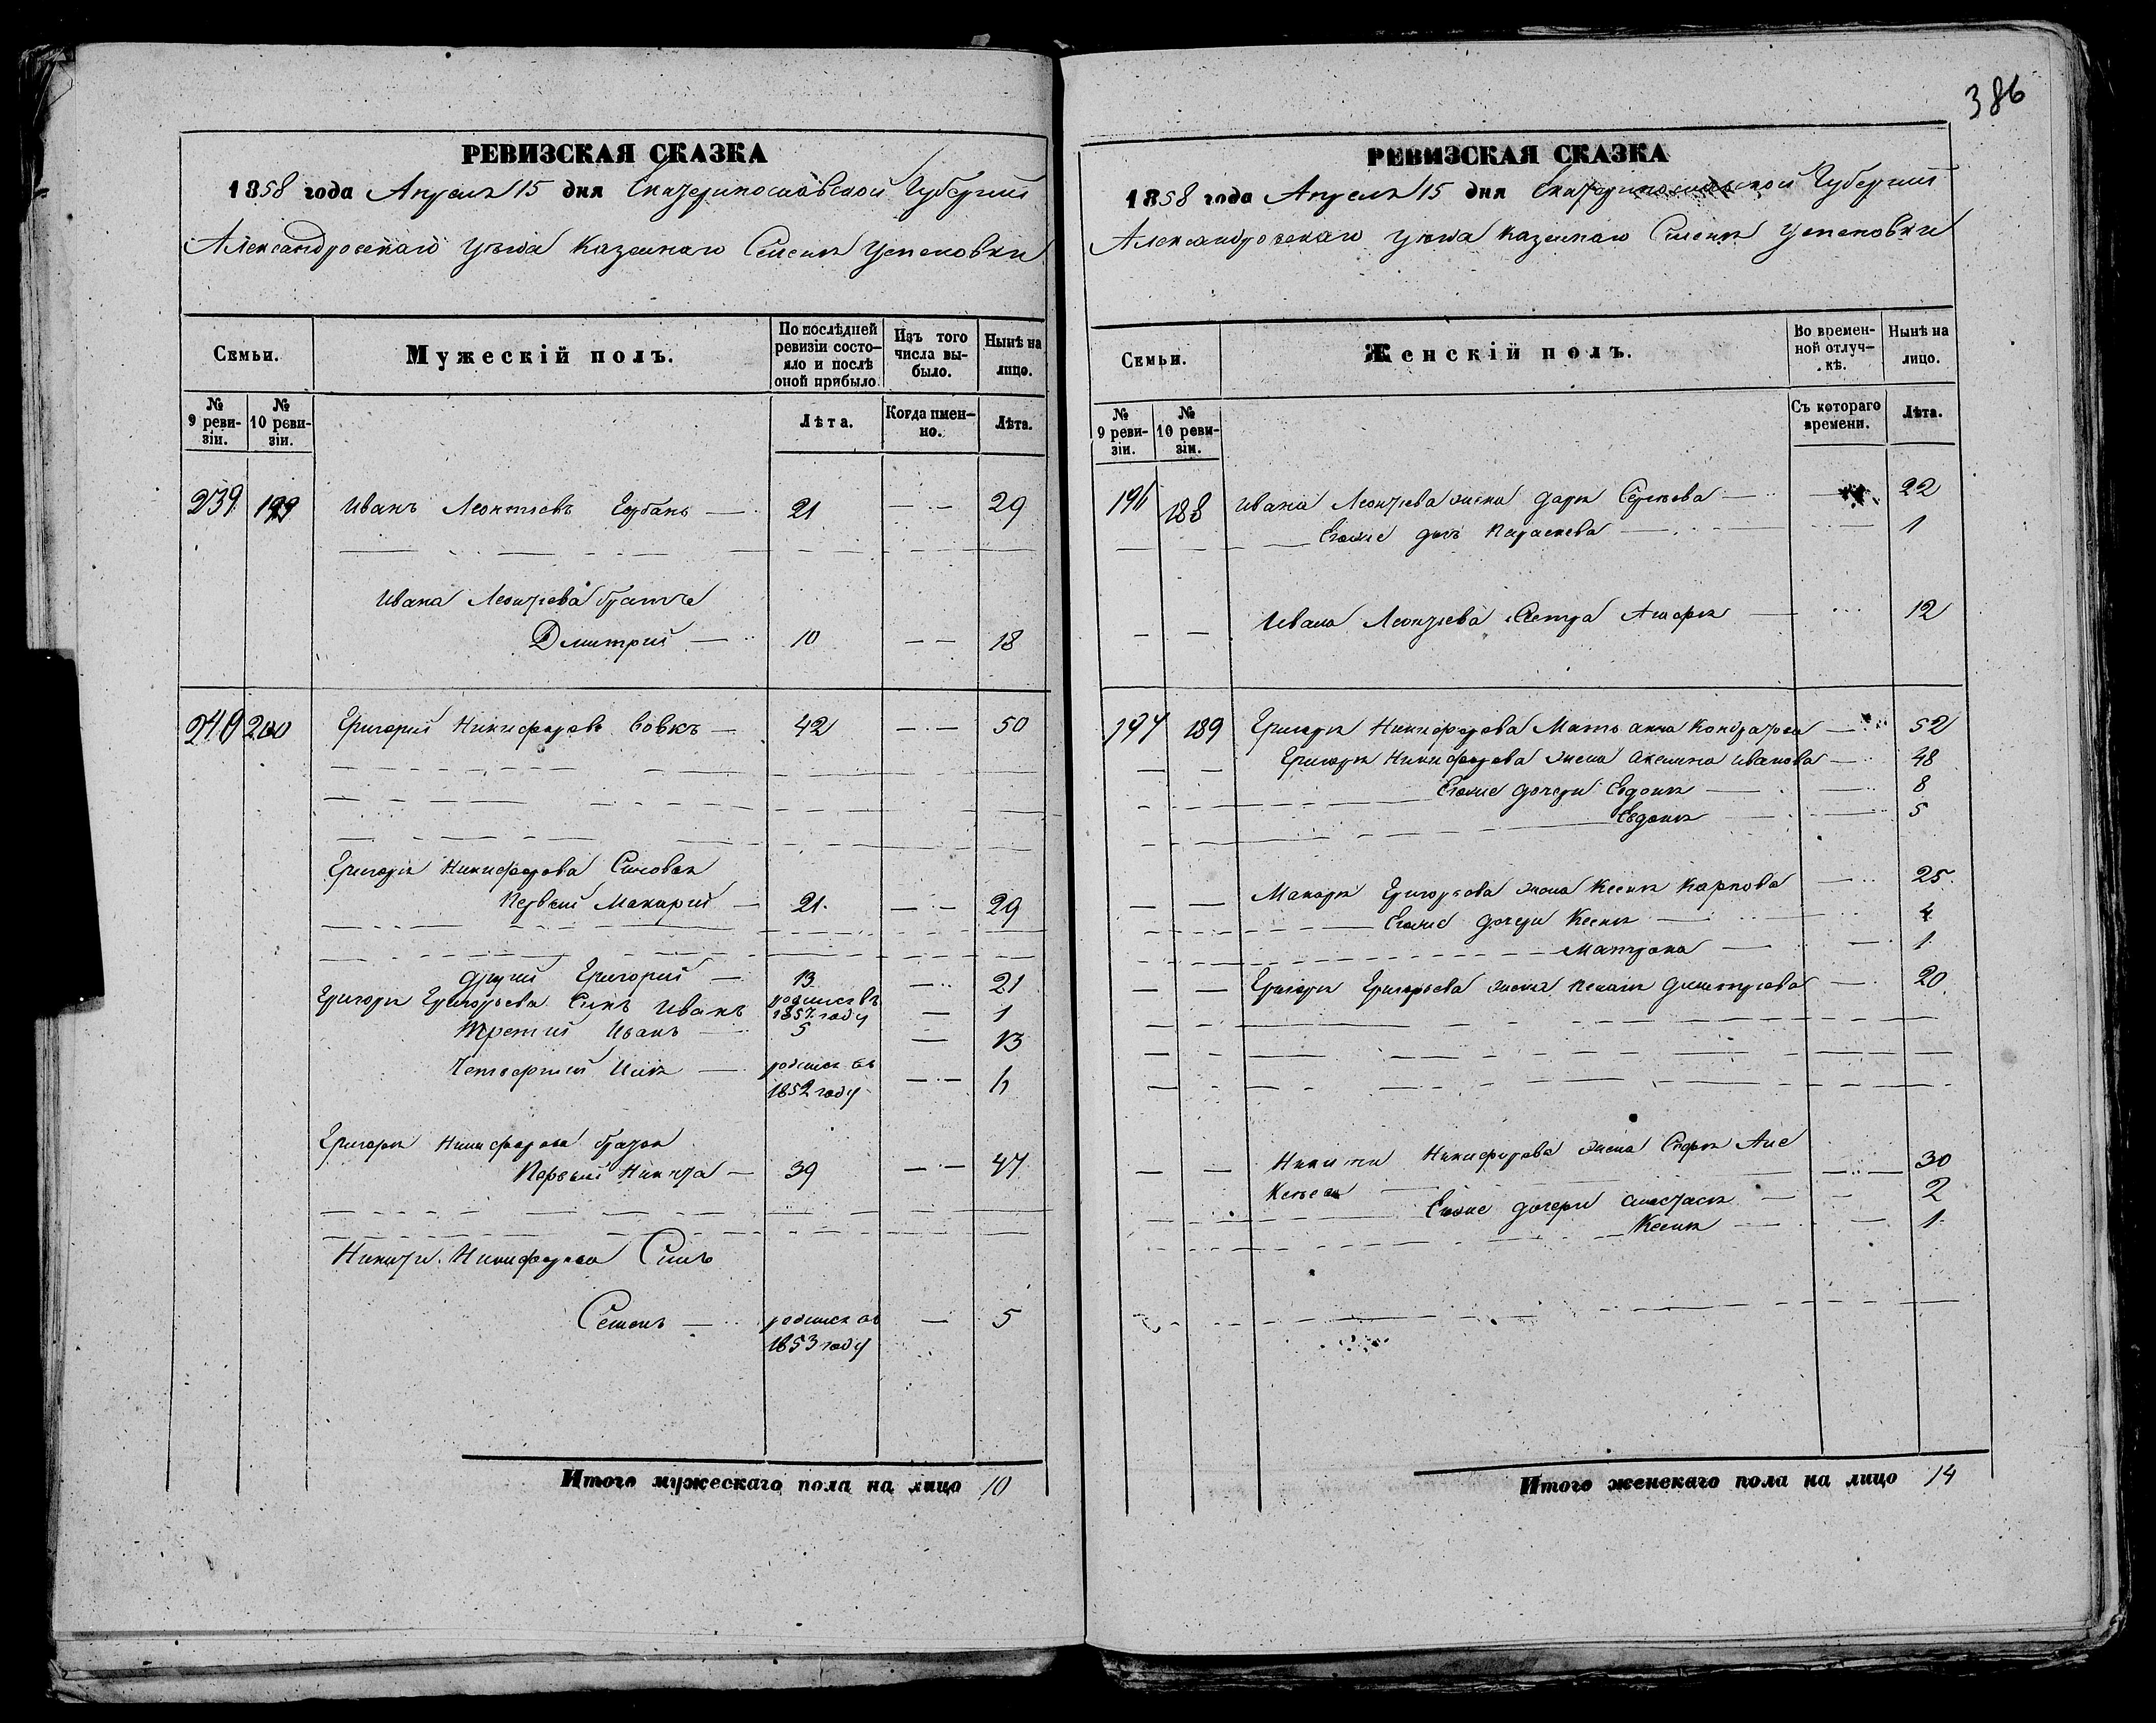 РЕВИЗСКАЯ СКАЗКА
1858 года Апреля 15 дня Екатеринославской Губернии
Александровскаго уезда казеннаго Селения Успеновки
Семьи.
Мужескій полъ.
По послѣдней ревизіи состояло и послѣ оной прибыло.
Изъ того числа выбыло.
Нынѣ на лицо.
№ 9 ревизіи.
№ 10 ревизіи.
Лѣта.
Когда именно.
Лѣта.
239 199 Иванъ Леонтіевъ — 21 — 29
Ивана Леонтіева братъ
Дмитрий — 10 — — 18
240 200 Григорий Никифоровъ Вовкъ — 42 — — 50
Григория Никифорова Сыновья
Первый Макарий — 21 — — 29
другий Григорий — 13 — 21
Григория Григорьева Сынъ Иванъ родился въ 1857 году — 1
Третий Иванъ — 5 — 13
Четвертий Илия — родился въ 1852 году — — 6
Григория Никифорова братья
Первый Никита — 39 — — 47
Никиты Никифорова Сынъ
Семенъ — родился въ 1853 году — 5
Итого мужескаго пола на лицо 10
386
РЕВИЗСКАЯ СКАЗКА
1858 года Апреля 15 дня Екатеринославской Губернии
Александровскаго уезда казеннаго Селения Успеновки
Семьи.
Женскій полъ.
Во временной отлучкѣ.
Нынѣ на лицо.
№ 9 ревизіи.
№ 10 ревизіи.
Съ котораго времени.
Лѣта.
196 188 Ивана Леонтіева жена Дарья Сергеева — 22
Егоже дочь Параскева — 1
Ивана Леонтіева Сестра — 12
197 189 Григория Никифорова Мать Анна Кондратова — 52
Григория Никифорова жена Акелина Иванова — 48
Егоже дочери Евдокия — 8
Евдокия — 5
Макария Григорьева жена Ксения Карпова — 25
Егоже дочери Ксения — 4
Матрона — 1
Григория Григорьева жена Дмитриева — 20
Никиты Никифорова жена Софія Але
ксеева — 30
Егоже дочери Анастасия — 2
Ксения — 1
Итого женскаго пола на лицо 14